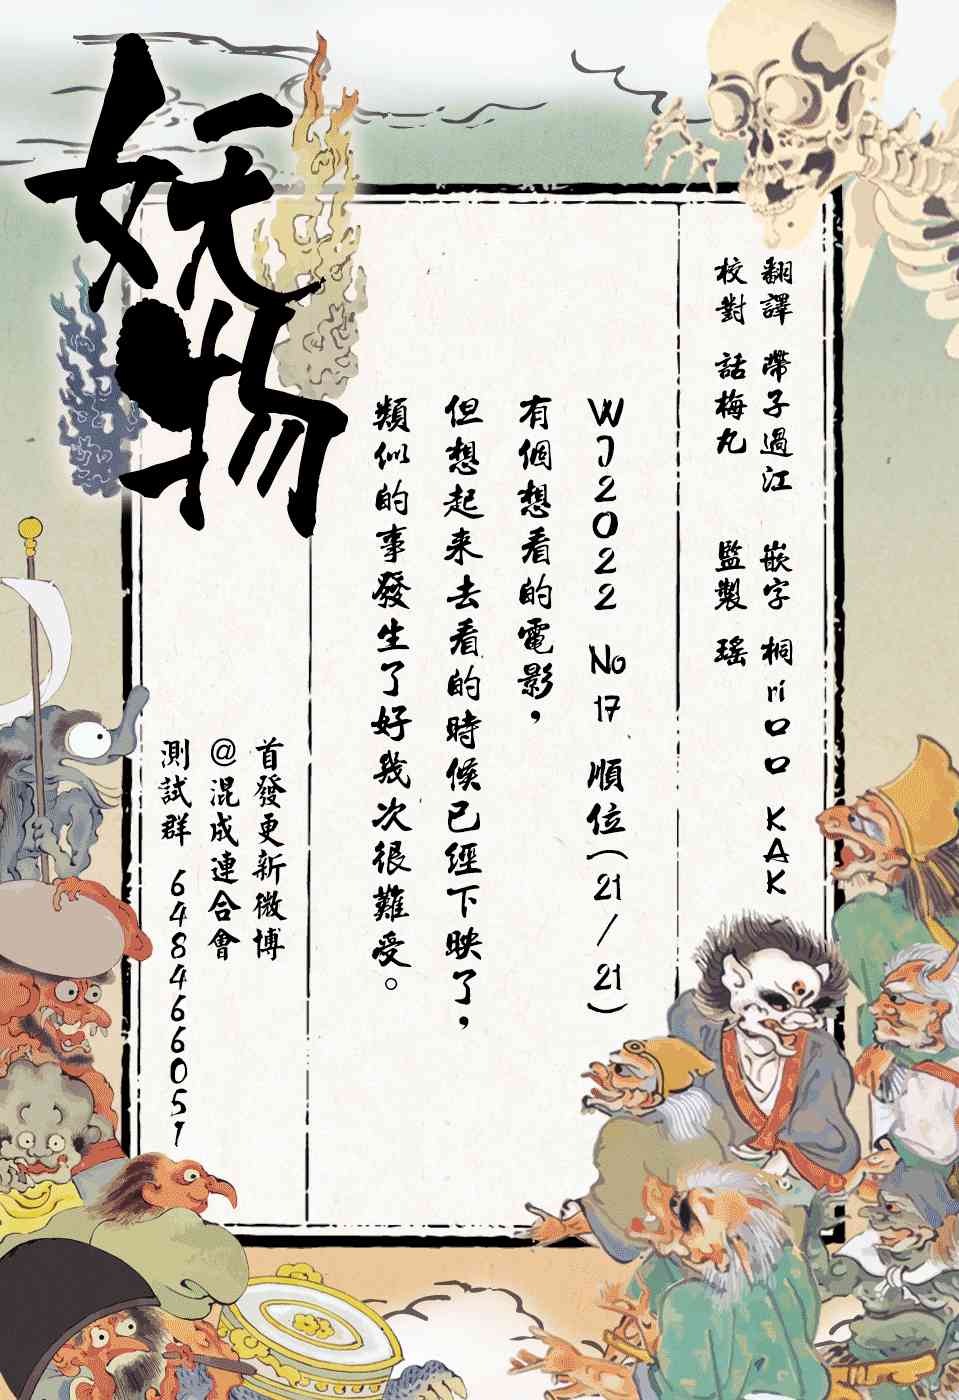 妖物
翻譯 帶子過江 嵌字 桐ri口口 KAK
校對 話梅丸 監製 瑤
WJ2022 No 17 順位(21/21)
有個想看的電影，
但想起来去看的時候已經下映了，
類似的事發生了好幾次很難受。
首發更新微博
@混成連合會
測試群 648466051